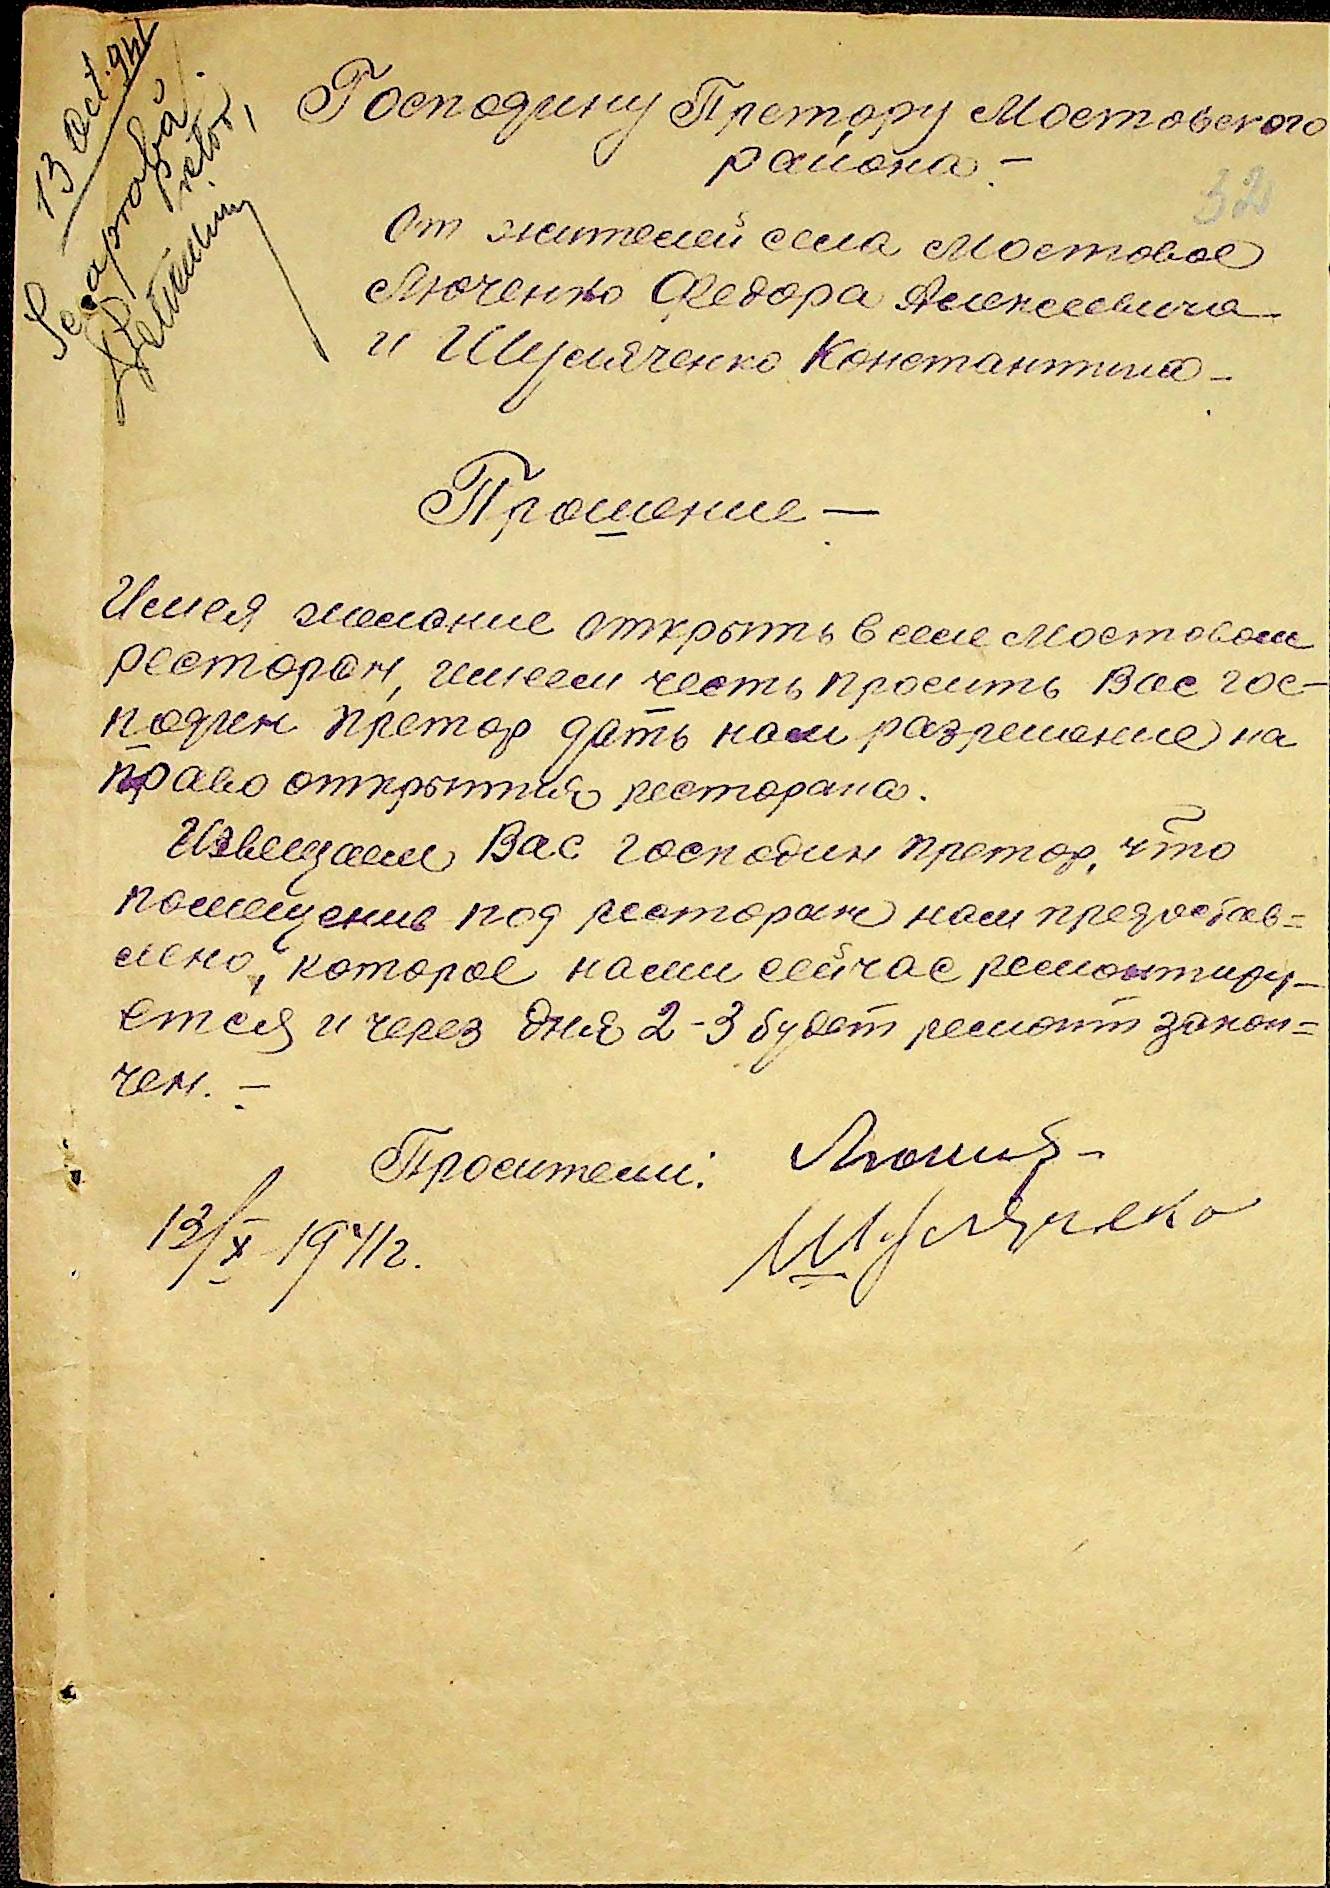 13 Oct. 941
Se aprobă
Pretor,
Господину Претору Мостовского
района. –
32
От жителей села Мостовое
Люченко Федора Алексеевича
и Шуляченко Константина –
Прошение –
Имея желание открыть в селе Мостовом
ресторан, имеем честь просить Вас гос-
подин претор дать нам разрешение на
право открытия ресторана.
Извещаем Вас господин претор, что
помещение под ресторан нам предостав=
лено, которое нами сейчас ремонтиру-
ется и через дня 2-3 будет ремонт закон=
чен. –
Просители:
Шулячеко
13/X 1941 г.